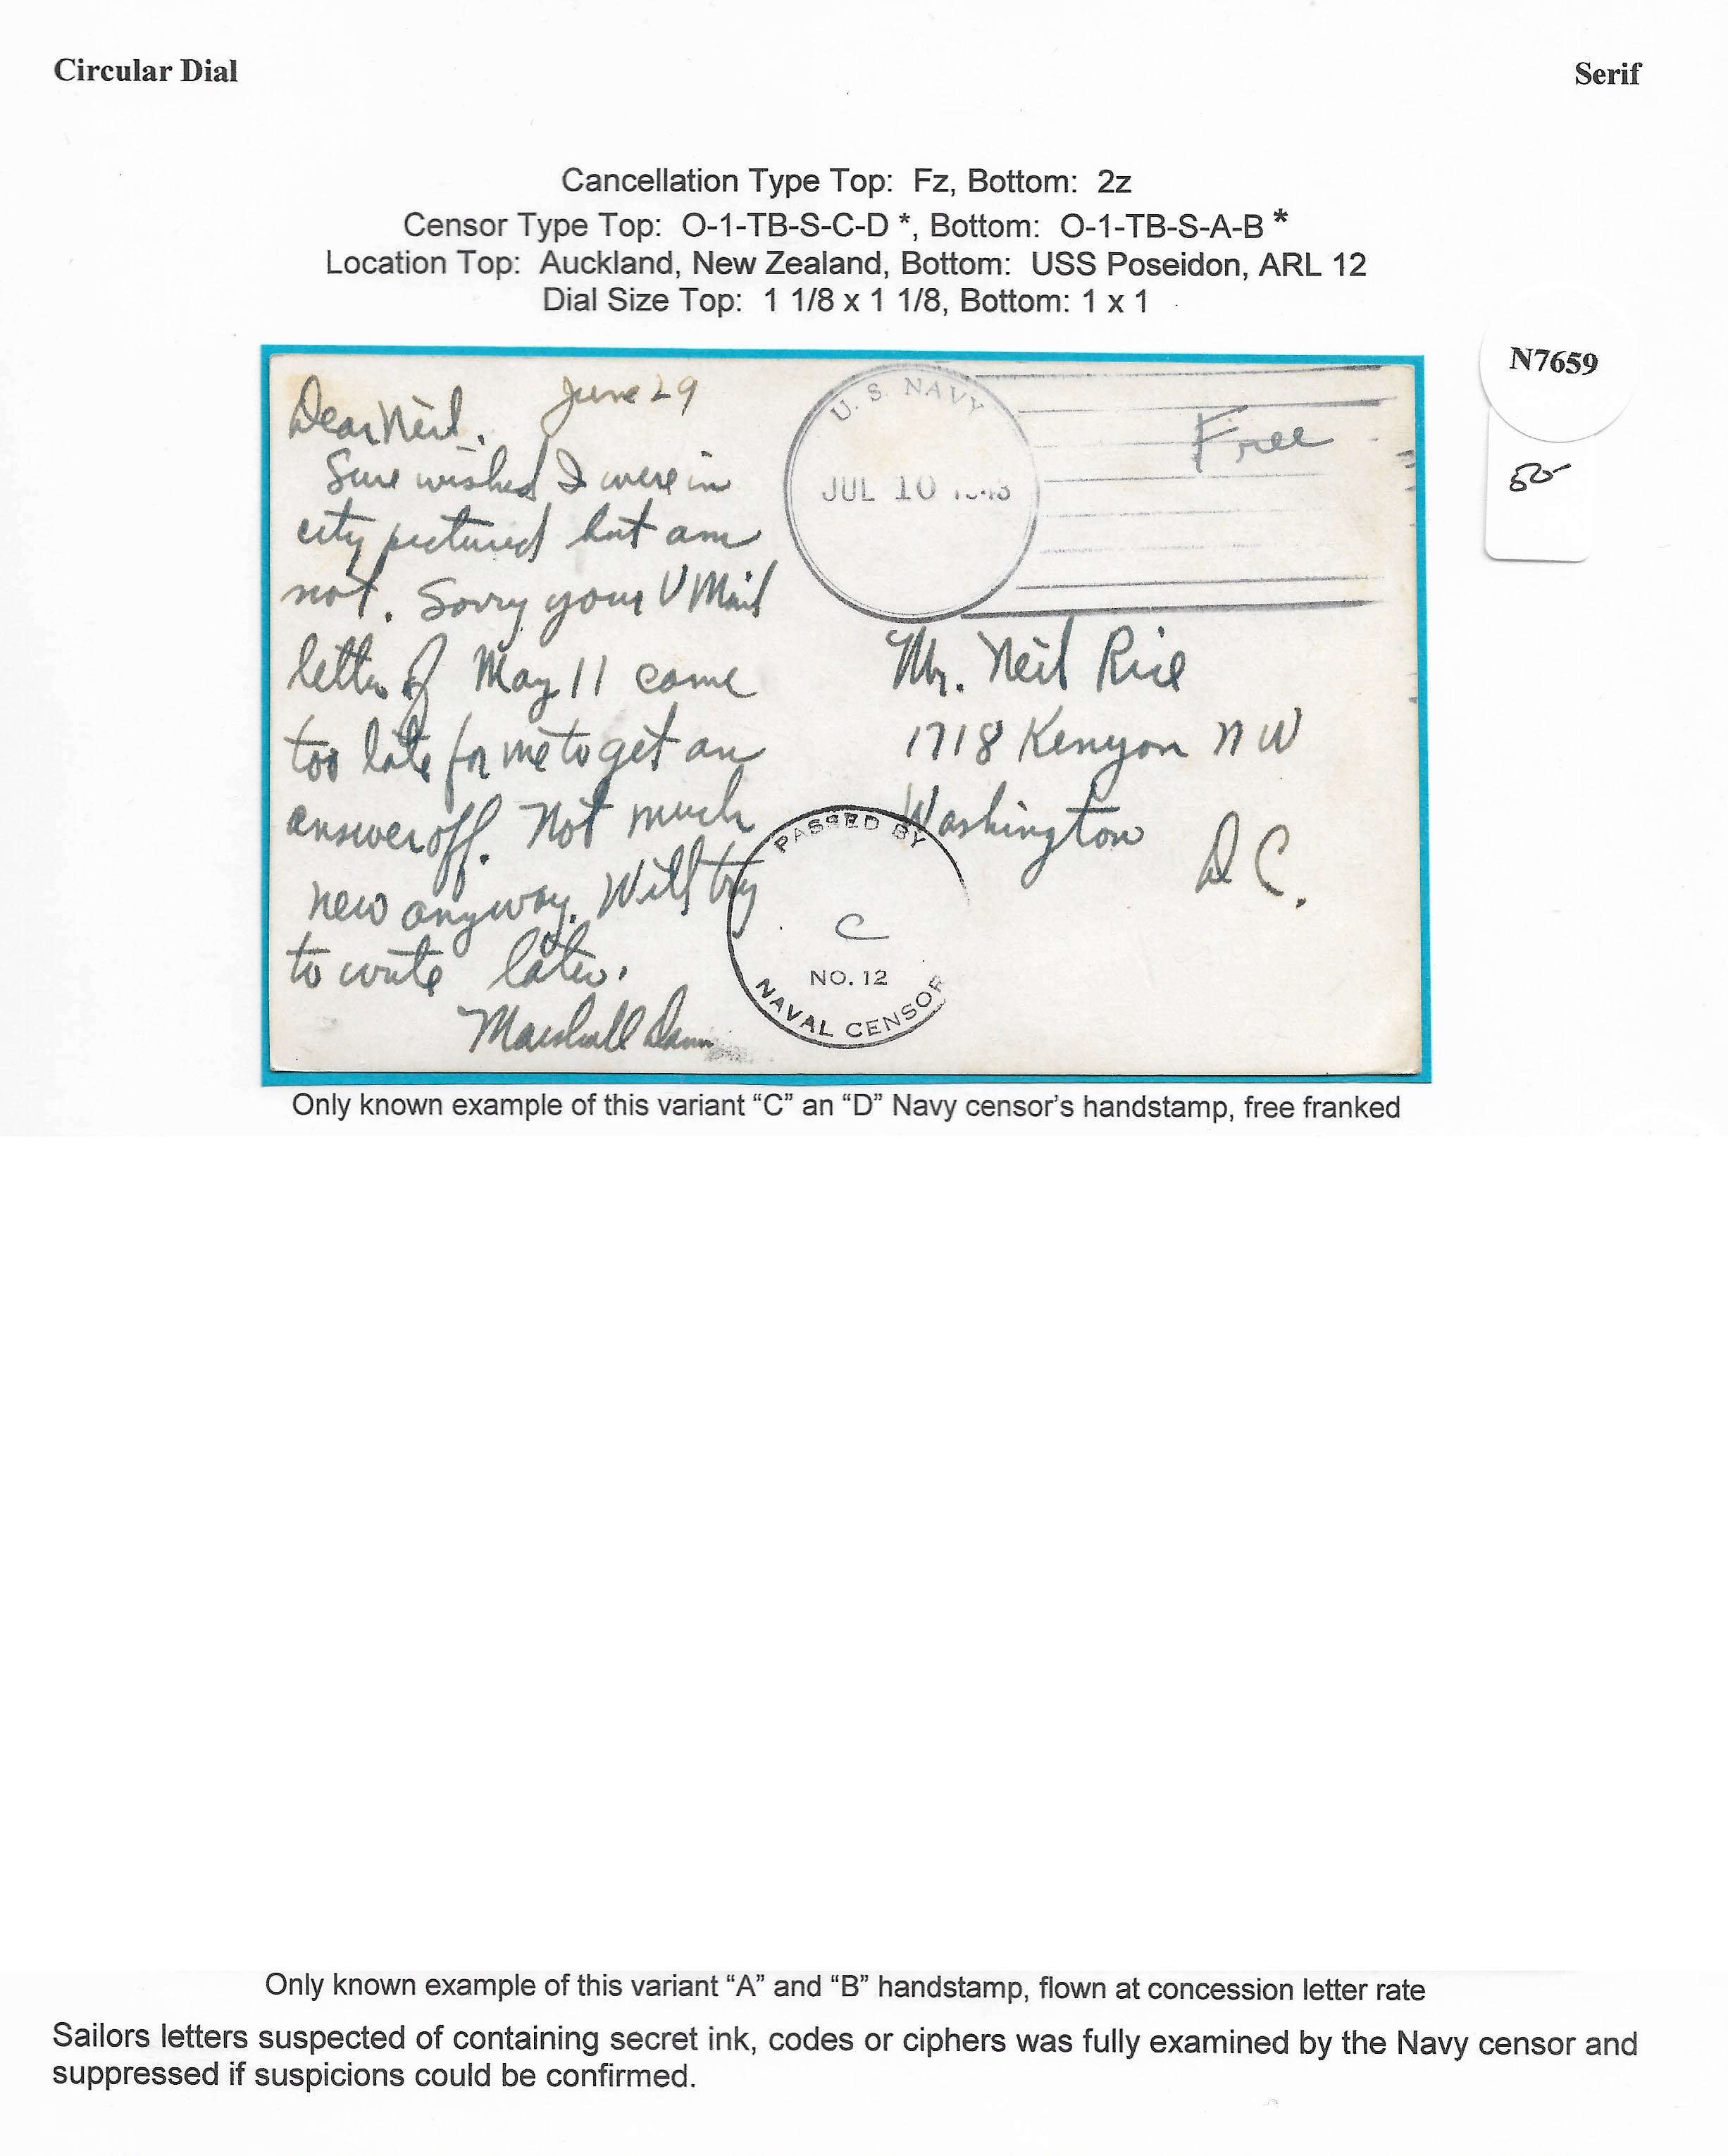 Circular Dial
Serif
Cancellation Type Top: Fz, Bottom: 2z
Censor Type Top: O-1-TB-S-C-D *, Bottom: O-1-TB-S-A-B *
Location Top: Auckland, New Zealand, Bottom: USS Poseidon, ARL 12
Dial Size Top: 1 1/8 x 1 1/8, Bottom: 1 x 1
N7659
50-
June 29
Dear Neil.
Sure wished I were in
city pictured but am
not. Sorry your V Mail
letter of May 11 came
too late for me to get an
answer off. Not much
new anyway. Will try
to write later.
Marshall
U. S. NAVY
JUL 10
Free
Mr. Neil Rice
1718 Kenyon NW
Washington
D C.
PASSED BY
C
NO. 12
NAVAL CENSOR
Only known example of this variant “C” an “D” Navy censor's handstamp, free franked
Only known example of this variant “A” and “B” handstamp, flown at concession letter rate
Sailors letters suspected of containing secret ink, codes or ciphers was fully examined by the Navy censor and
suppressed if suspicions could be confirmed.